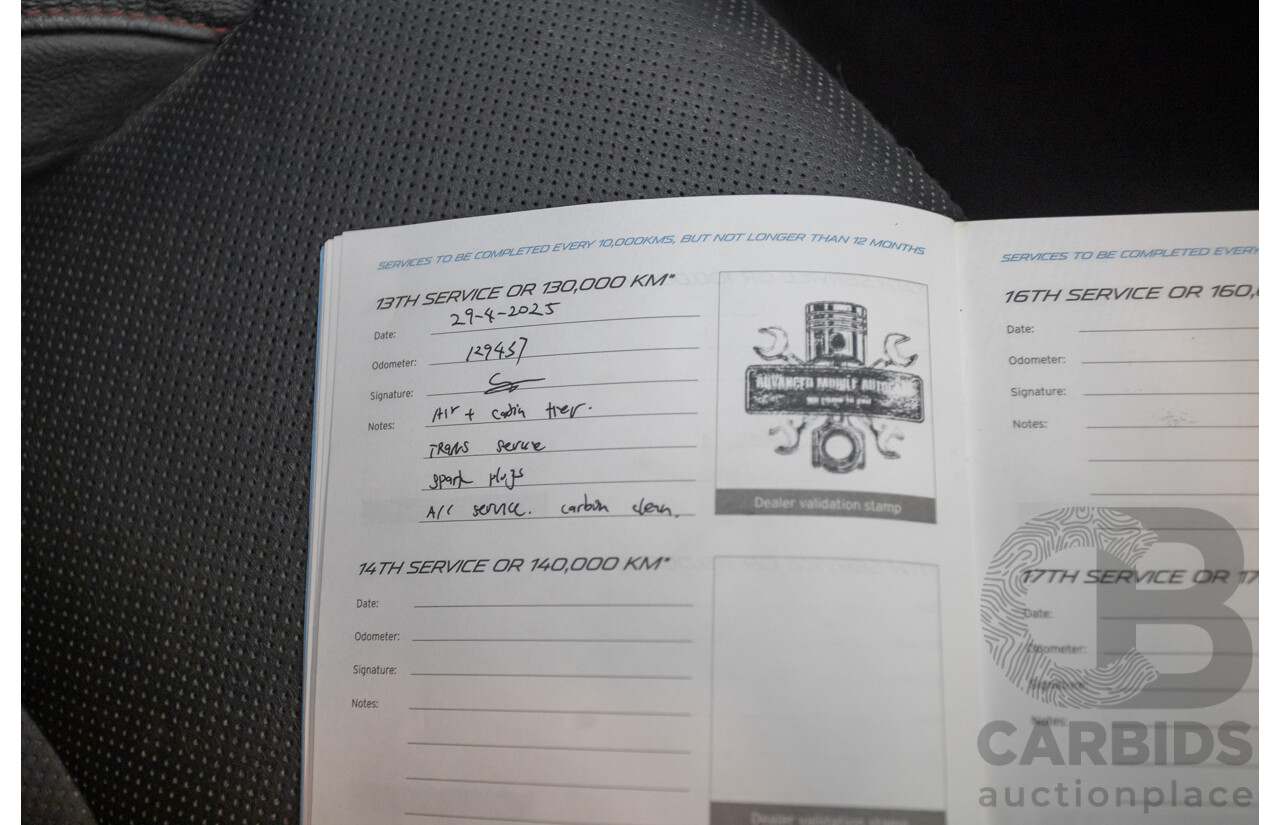 SERVICES TO BE COMPLETED EVERY 10,000KMS, BUT NOT LONGER THAN 12 MONTHS
13TH SERVICE OR 130,000 KM*
Date: 29-4-2025
Odometer: 129457
Signature:
Notes: Air + cabin
Trans service
Spark plugs
A/C service. carbon clean.
ADVANCED MOBILE
Dealer validation stamp
14TH SERVICE OR 140,000 KM*
Date:
Odometer:
Signature:
Notes:
Dealer validation stamp
SERVICES TO BE COMPLETED EVERY
16TH SERVICE OR 160,
Date:
Odometer:
Signature:
Notes:
17TH SERVICE OR 17
Date:
Odometer:
Signature:
Notes:
CB
CARBIDS
auctionplace